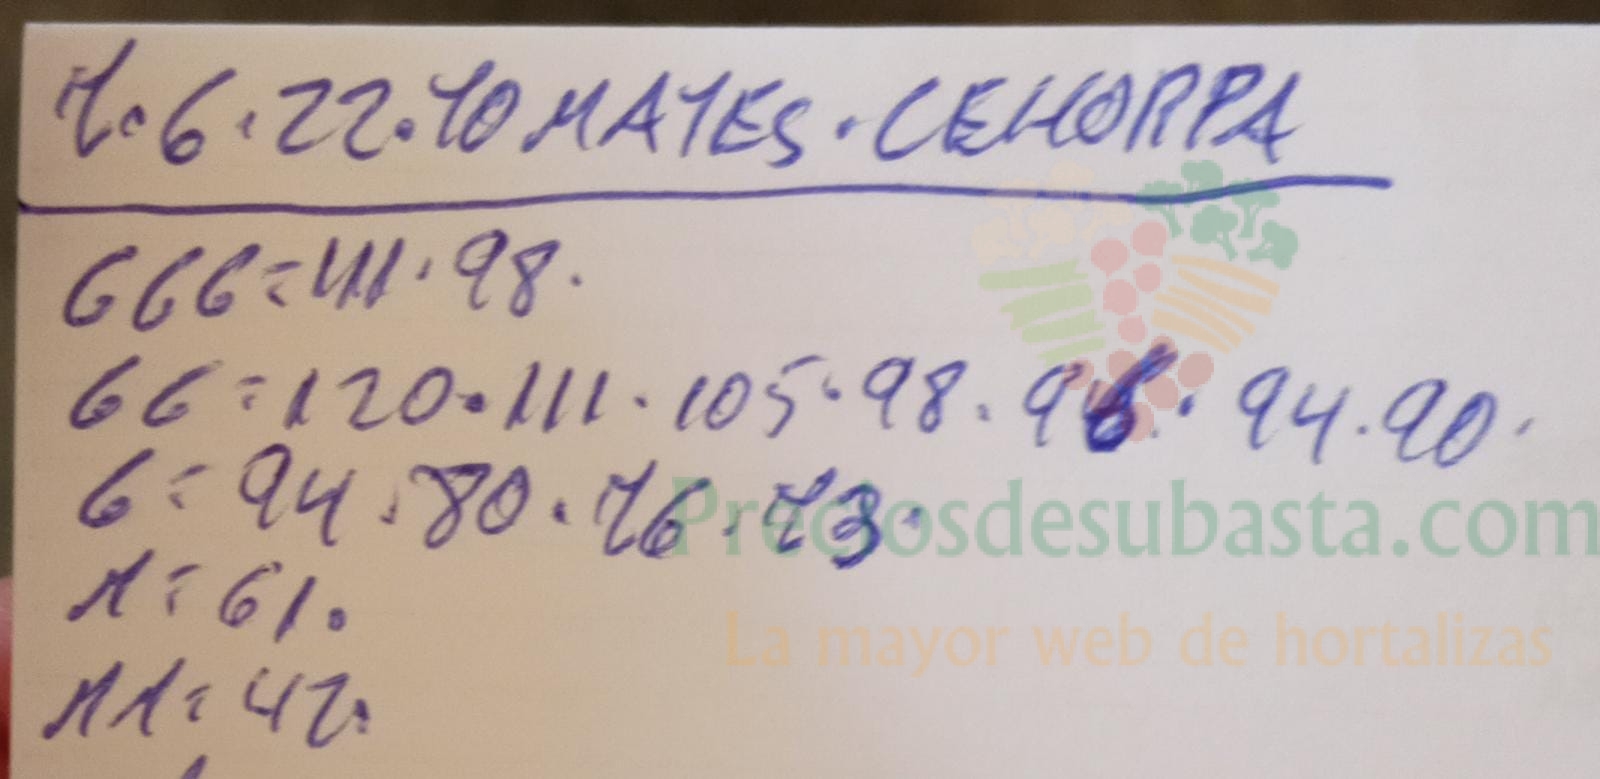 7.6.22.TOMATES.CEHORPA
GGG=111.98.
GG=120.111.105.98.96.94.90.
G=94.80.76.73.
M=61.
MM=47.
Preciosdesubasta.com
La mayor web de hortalizas